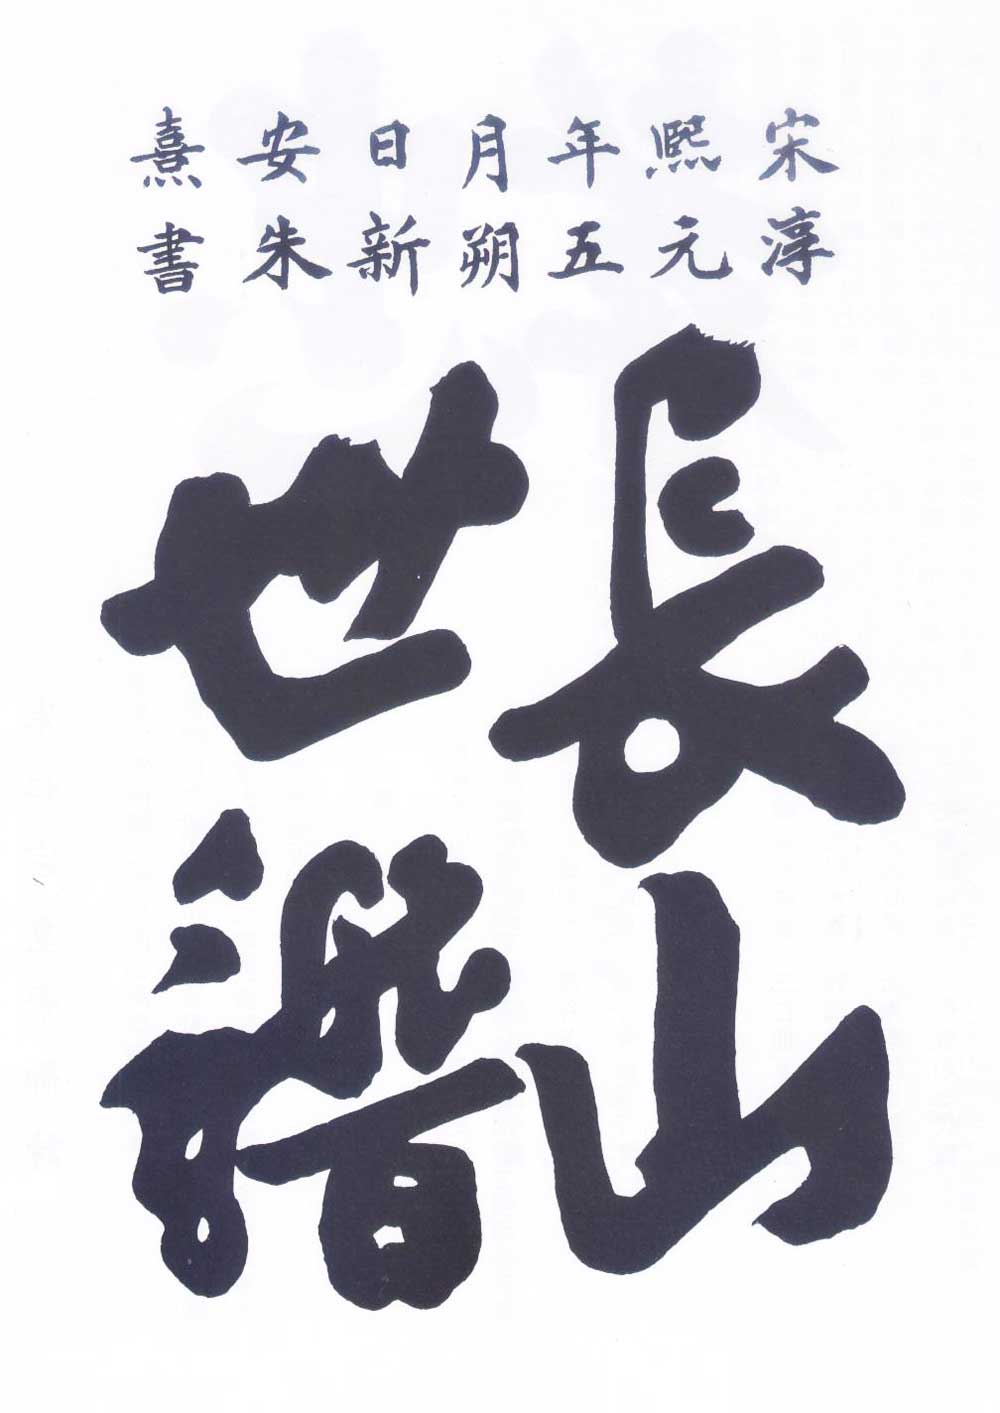 宋淳
熙元
年五
月朔
日新
安朱
熹書
長山
世譜